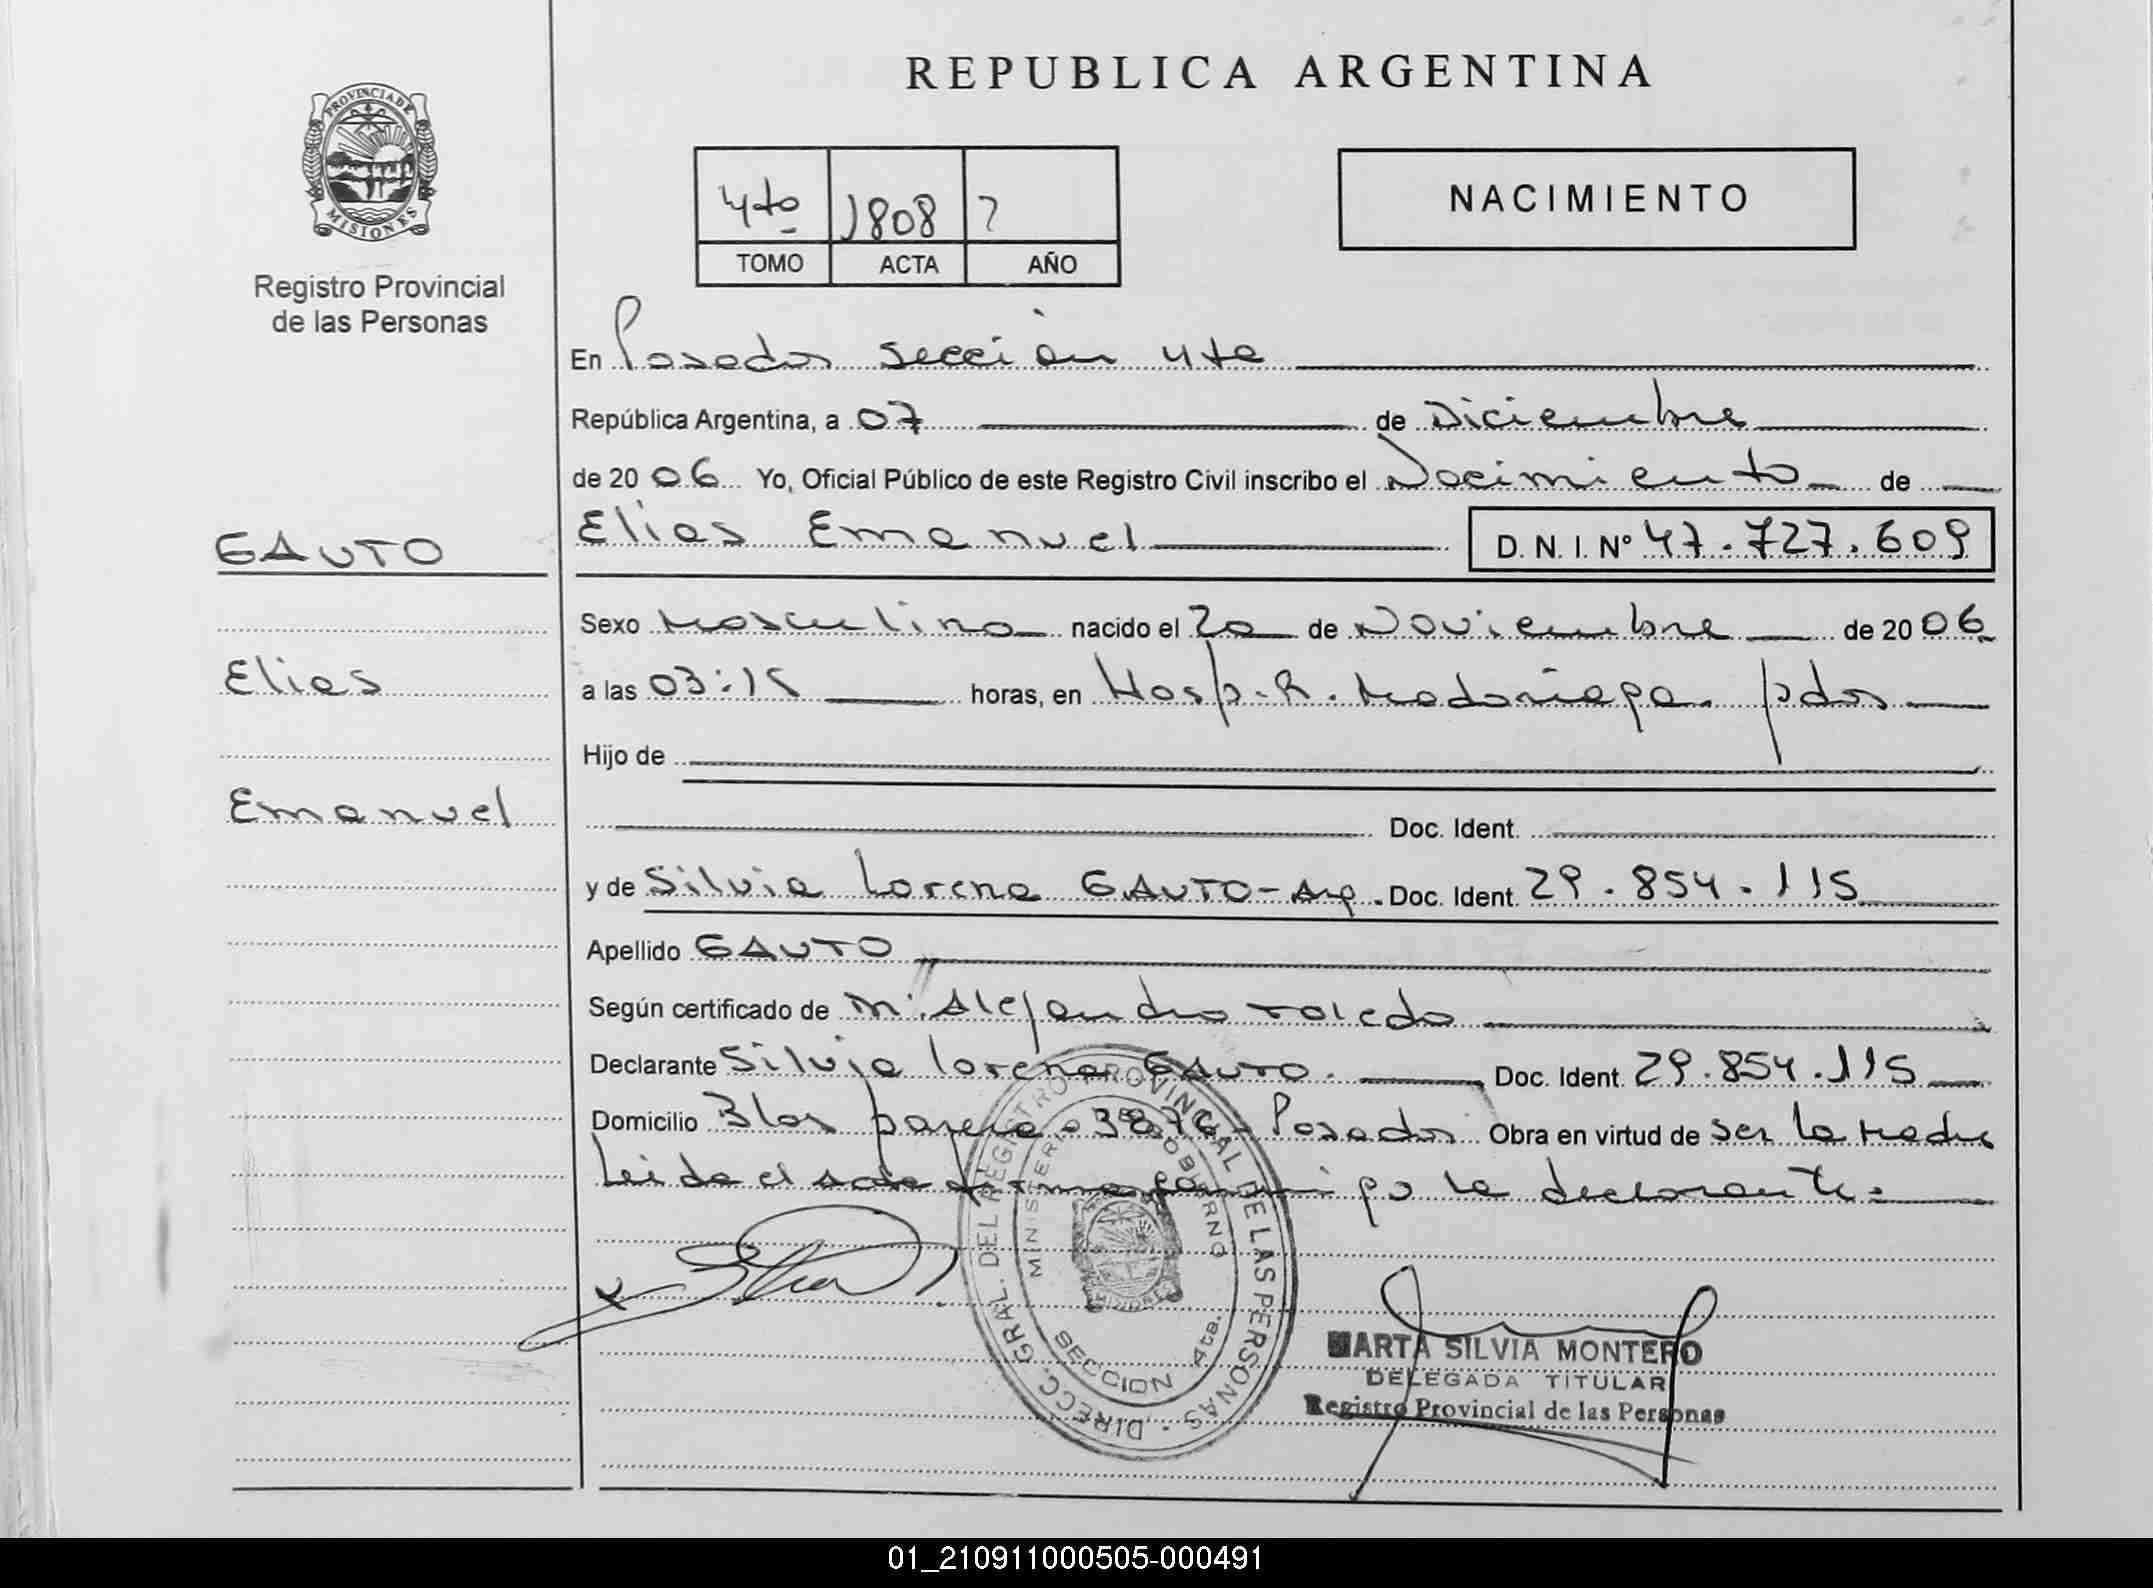 REPUBLICA ARGENTINA
PROVINCIA DE
MISIONES
Registro Provincial
de las Personas
4to 1808 ?
TOMO ACTA AÑO
NACIMIENTO
En Posadas sección 4ta
República Argentina, a 07 de Diciembre
de 2006 Yo, Oficial Público de este Registro Civil inscribo el Nacimiento de
GAUTO
Elias Emanuel D. N. I. Nº 47.727.609
Sexo Masculino nacido el 20 de Noviembre de 2006
Elias
a las 03:15 horas, en Hosp. R. Madariaga. pdas
Hijo de
Emanuel
Doc. Ident.
y de Silvia Lorena GAUTO - Arg. Doc. Ident. 29.854.115
Apellido GAUTO
Según certificado de M. Alejandro Toledo
Declarante Silvia Lorena GAUTO. Doc. Ident. 29.854.115
Domicilio Blas parera 3876 - Posadas Obra en virtud de ser la madre
Leida el acta la declarante.
DIRECC. GRAL. DEL REGISTRO PROVINCIAL DE LAS PERSONAS
MINISTERIO DE GOBIERNO
MISIONES
SECCION 4ta.
MARTA SILVIA MONTERO
DELEGADA TITULAR
Registro Provincial de las Personas
01_210911000505-000491